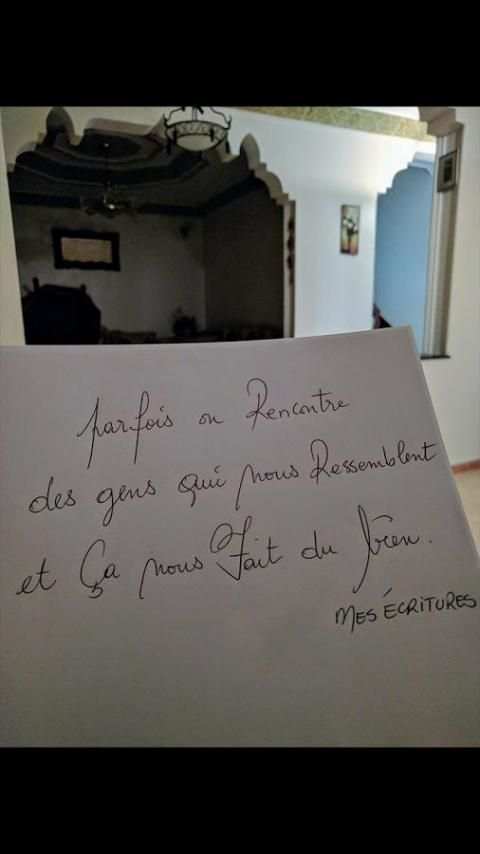 parfois on Rencontre
des gens qui nous Ressemblent
et Ça nous Fait du bien.
MES ÉCRITURES